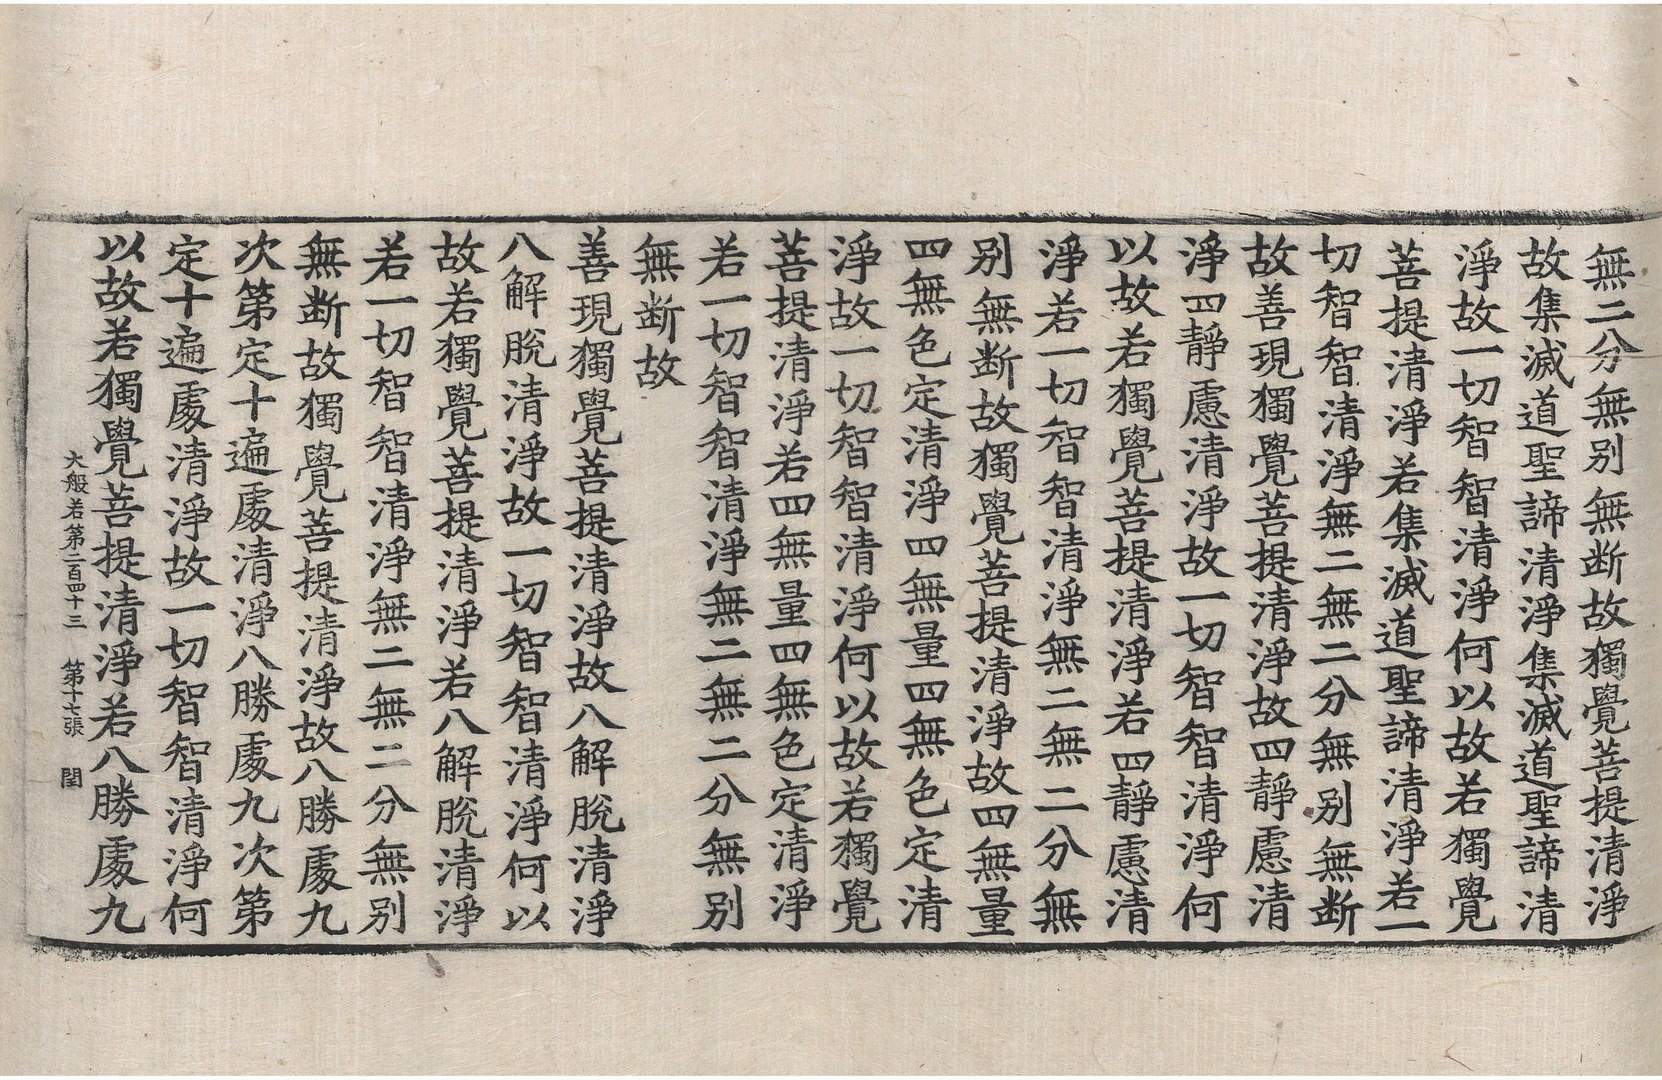 無二分無别無断故獨覺菩提清淨
故集滅道聖諦清淨集滅道聖諦清
淨故一切智智清淨何以故若獨覺
菩提清淨若集滅道聖諦清淨若一
切智智清淨無二無二分無别無断
故善現獨覺菩提清淨故四靜慮清
淨四靜慮清淨故一切智智清淨何
以故若獨覺菩提清淨若四靜慮清
淨若一切智智清淨無二無二分無
别無断故獨覺菩提清淨故四無量
四無色定清淨四無量四無色定清
淨故一切智智清淨何以故若獨覺
菩提清淨若四無量四無色定清淨
若一切智智清淨無二無二分無别
無断故
善現獨覺菩提清淨故八解脫清淨
八解脫清淨故一切智智清淨何以
故若獨覺菩提清淨若八解脫清淨
若一切智智清淨無二無二分無别
無断故獨覺菩提清淨故八勝處九
次第定十遍處清淨八勝處九次第
定十遍處清淨故一切智智清淨何
以故若獨覺菩提清淨若八勝處九
大般若第二百四十三 第十七張 閏